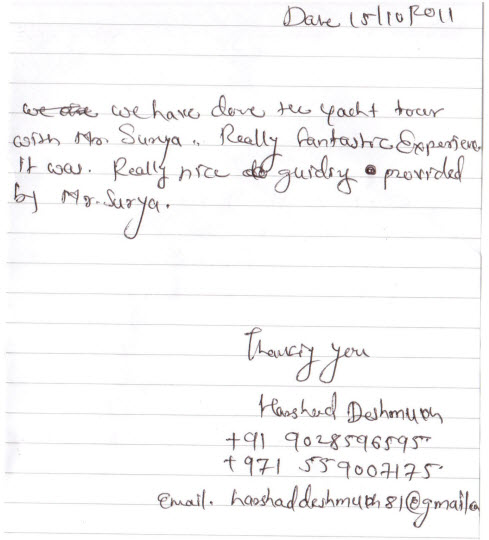 Date 15/10/2011
we have done the yacht tour
with Mr. Surya. Really fantastic Experience
it was. Really nice guiding provided
by Mr. Surya.
Thanking you
Harshad Deshmukh
+91 9028596595
+971 559007175
Email. harshaddeshmukh81@gmail.co